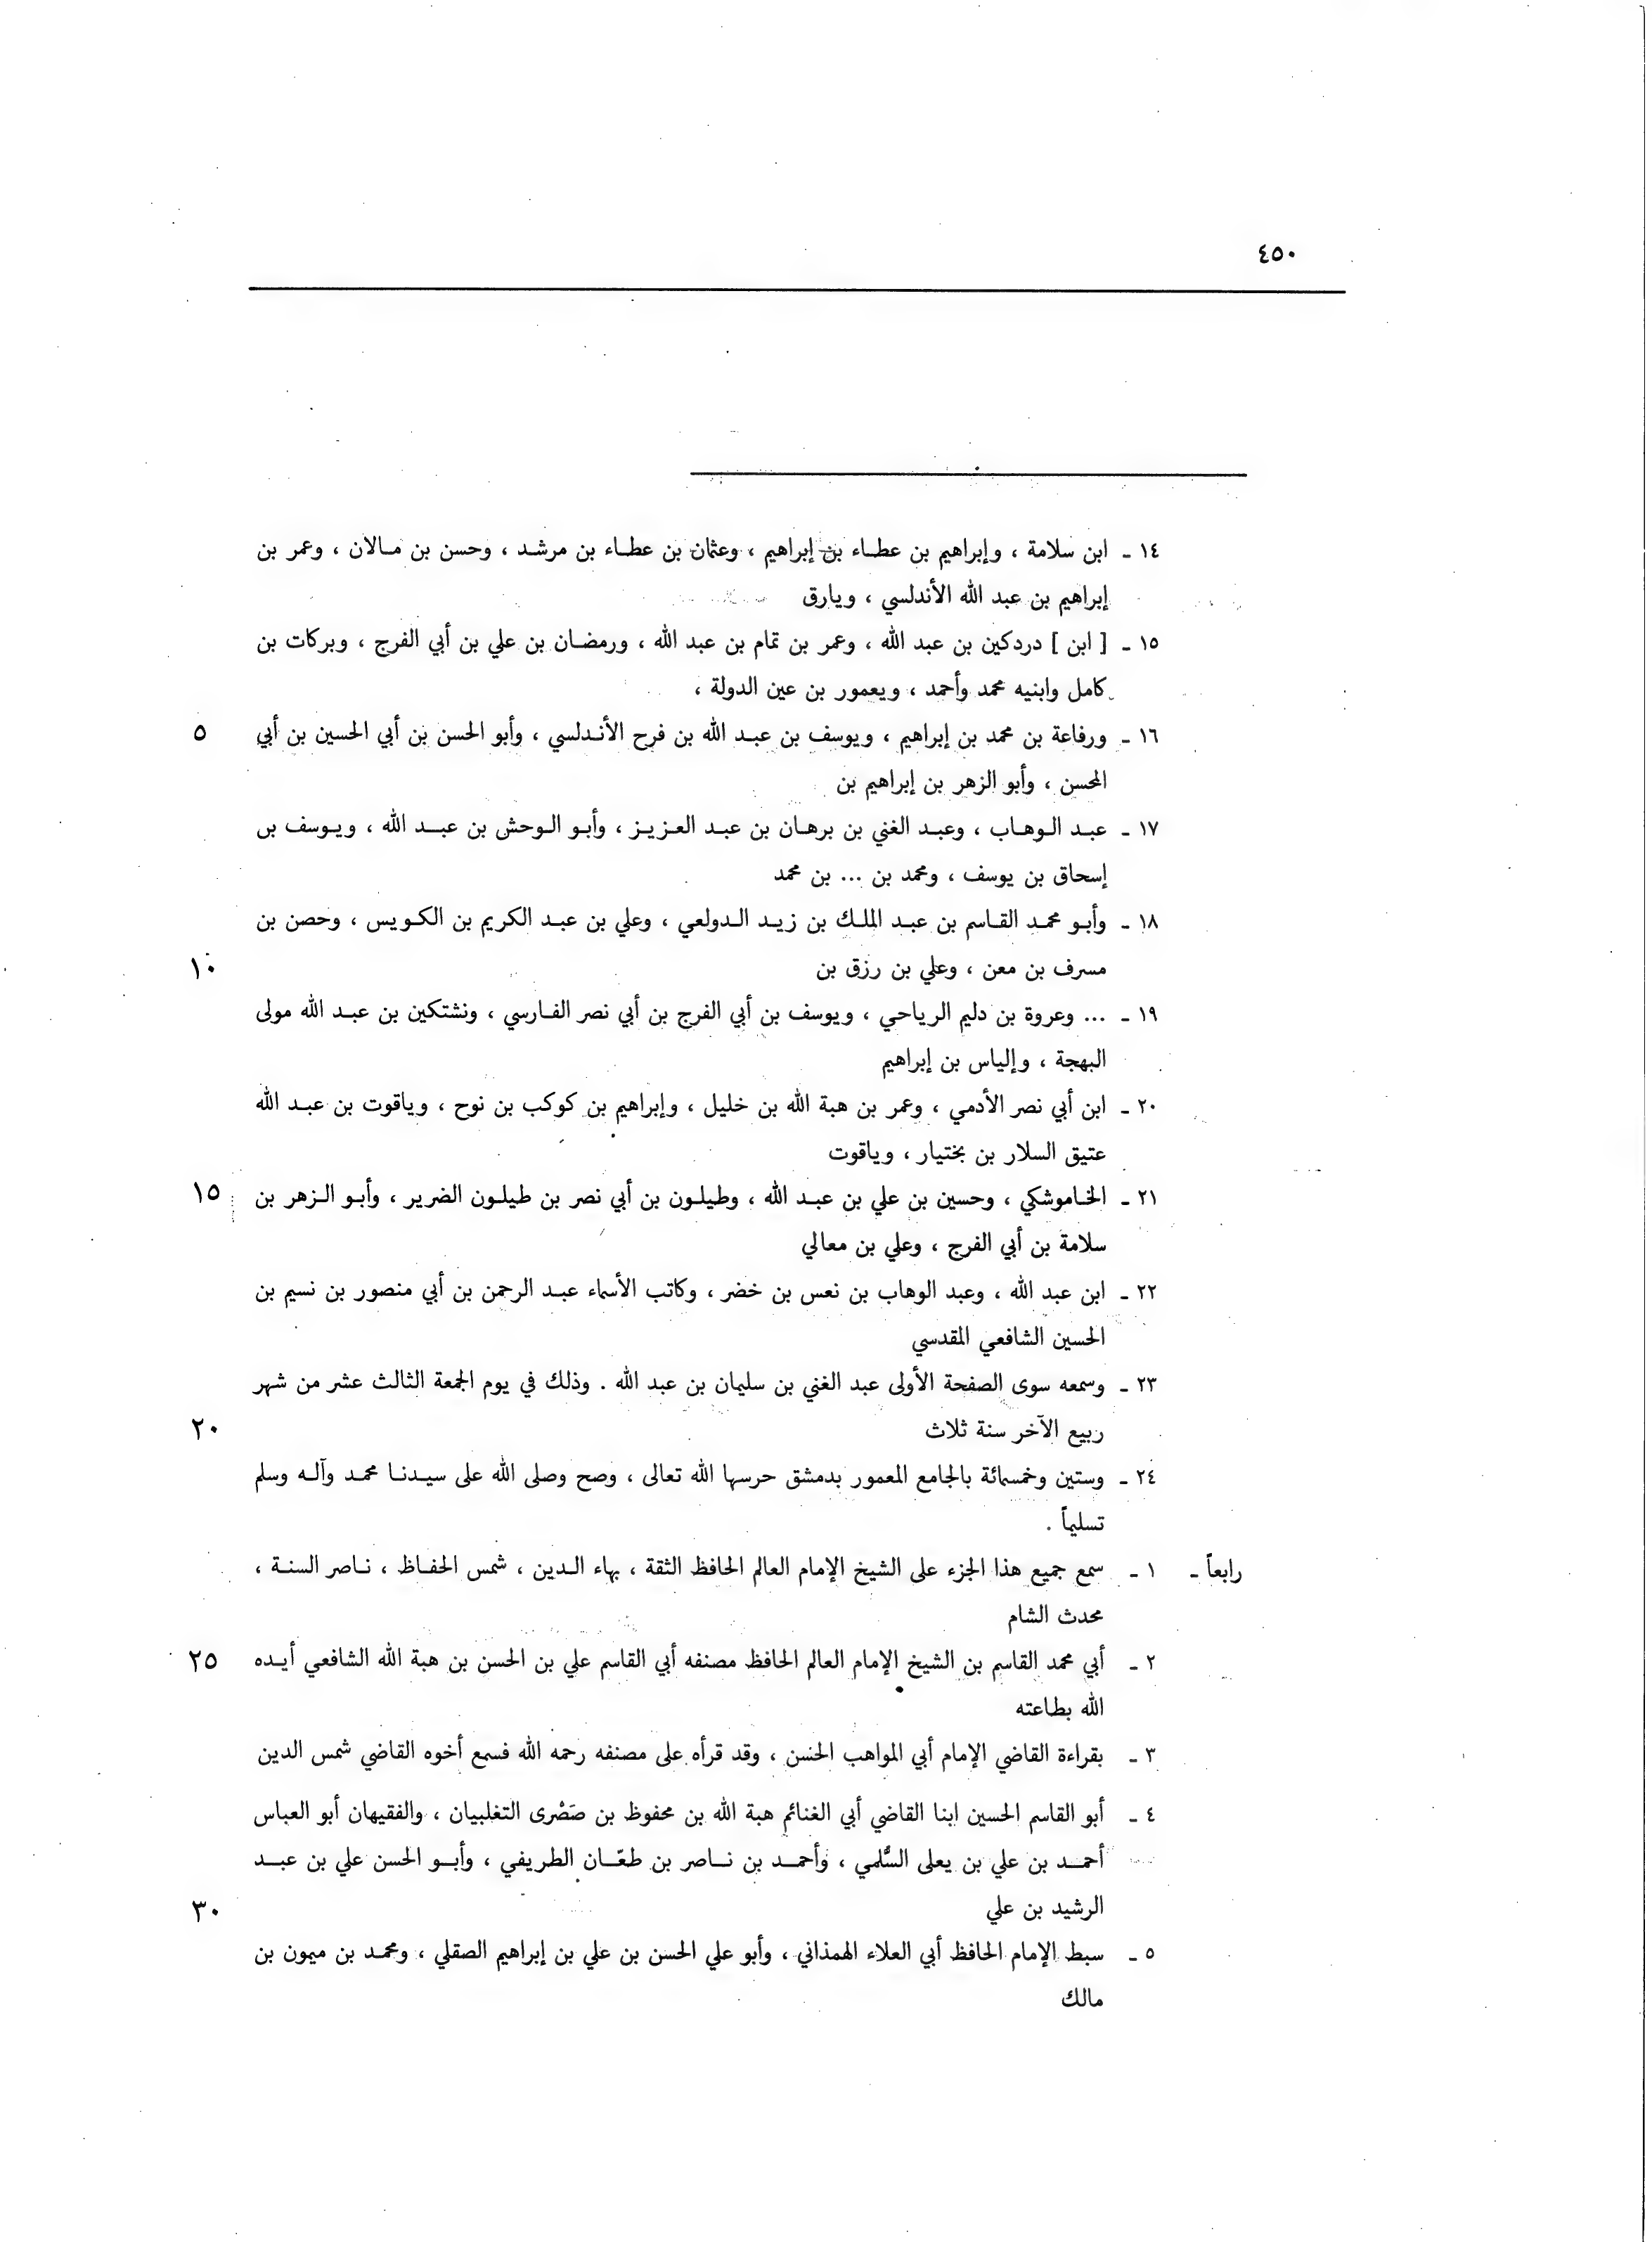 ٤٥٠
١٤ ـ ابن سلامة ، وإبراهيم بن عطاء بن إبراهيم ، وعثمان بن عطاء بن مرشد ، وحسن بن مالان ، وعمر بن
إبراهيم بن عبد الله الأندلسي ، ويارق
١٥ ـ [ ابن ] دردكين بن عبد الله ، وعمر بن تمام بن عبد الله ، ورمضان بن علي بن أبي الفرج ، وبركات بن
كامل وابنيه محمد وأحمد ، ويعمور بن عين الدولة ،
١٦ ـ ورفاعة بن محمد بن إبراهيم ، ويوسف بن عبد الله بن فرح الأندلسي ، وأبو الحسن بن أبي الحسين بن أبي ٥
المحسن ، وأبو الزهر بن إبراهيم بن
١٧ ـ عبد الوهاب ، وعبد الغني بن برهان بن عبد العزيز ، وأبو الوحش بن عبد الله ، ويوسف بن
إسحاق بن يوسف ، ومحمد بن ... بن محمد
١٨ ـ وأبو محمد القاسم بن عبد الملك بن زيد الدولعي ، وعلي بن عبد الكريم بن الكويس ، وحصن بن
مسرف بن معن ، وعلي بن رزق بن ١٠
١٩ ـ ... وعروة بن دليم الرياحي ، ويوسف بن أبي الفرج بن أبي نصر الفارسي ، ونشتكين بن عبد الله مولى
البهجة ، وإلياس بن إبراهيم
٢٠ ـ ابن أبي نصر الأدمي ، وعمر بن هبة الله بن خليل ، وإبراهيم بن كوكب بن نوح ، وياقوت بن عبد الله
عتيق السلار بن بختيار ، وياقوت
٢١ ـ الخاموشكي ، وحسين بن علي بن عبد الله ، وطيلون بن أبي نصر بن طيلون الضرير ، وأبو الزهر بن ١٥
سلامة بن أبي الفرج ، وعلي بن معالي
٢٢ ـ ابن عبد الله ، وعبد الوهاب بن نعس بن خضر ، وكاتب الأسماء عبد الرحمن بن أبي منصور بن نسيم بن
الحسين الشافعي المقدسي
٢٣ ـ وسمعه سوى الصفحة الأولى عبد الغني بن سليمان بن عبد الله . وذلك في يوم الجمعة الثالث عشر من شهر
ربيع الآخر سنة ثلاث ٢٠
٢٤ ـ وستين وخمسمائة بالجامع المعمور بدمشق حرسها الله تعالى ، وصح وصلى الله على سيدنا محمد وآله وسلم
تسليماً .
رابعاً ـ ١ ـ سمع جميع هذا الجزء على الشيخ الإمام العالم الحافظ الثقة ، بهاء الدين ، شمس الحفاظ ، ناصر السنة ،
محدث الشام
٢ ـ أبي محمد القاسم بن الشيخ الإمام العالم الحافظ مصنفه أبي القاسم علي بن الحسن بن هبة الله الشافعي أيده ٢٥
الله بطاعته
٣ ـ بقراءة القاضي الإمام أبي المواهب الحسن ، وقد قرأه على مصنفه رحمه الله فسمع أخوه القاضي شمس الدين
٤ ـ أبو القاسم الحسين ابنا القاضي أبي الغنائم هبة الله بن محفوظ بن صَصْرى التغلبيان ، والفقيهان أبو العباس
أحمد بن علي بن يعلى السُّلمي ، وأحمد بن ناصر بن طعّان الطريفي ، وأبو الحسن علي بن عبد
الرشيد بن علي ٣٠
٥ ـ سبط الإمام الحافظ أبي العلاء الهمذاني ، وأبو علي الحسن بن علي بن إبراهيم الصقلي ، ومحمد بن ميمون بن
مالك